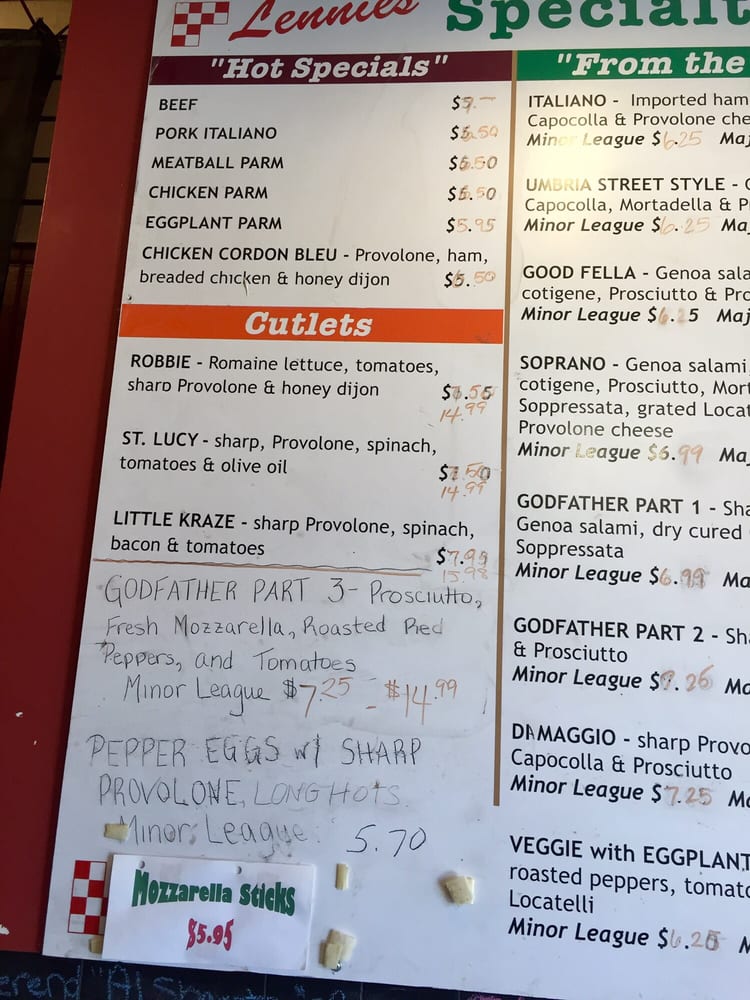 Lennies Specialt
"Hot Specials"
BEEF $5.-
PORK ITALIANO $6.50
MEATBALL PARM $6.50
CHICKEN PARM $6.50
EGGPLANT PARM $5.95
CHICKEN CORDON BLEU - Provolone, ham,
breaded chicken & honey dijon $6.50
Cutlets
ROBBIE - Romaine lettuce, tomatoes,
sharp Provolone & honey dijon
14.99
ST. LUCY - sharp, Provolone, spinach,
tomatoes & olive oil $7.50
14.99
LITTLE KRAZE - sharp Provolone, spinach,
bacon & tomatoes $7.99
15.98
GODFATHER PART 3 - Prosciutto,
Fresh Mozzarella, Roasted Red
Peppers, and Tomatoes
Minor League $7.25 - $14.99
PEPPER EGGS w/ SHARP
PROVOLONE, LONG HOTS
Minor League 5.70
Mozzarella Sticks
$5.95
"From the
ITALIANO - Imported ham
Capocolla & Provolone che
Minor League $6.25 Maj
UMBRIA STREET STYLE -
Capocolla, Mortadella & P
Minor League $6.25 Maj
GOOD FELLA - Genoa sala
cotigene, Prosciutto & Pro
Minor League $6.25 Maj
SOPRANO - Genoa salami,
cotigene, Prosciutto, Mort
Soppressata, grated Locat
Provolone cheese
Minor League $6.99 Ma
GODFATHER PART 1 - Sha
Genoa salami, dry cured
Soppressata
Minor League $6.99 Ma
GODFATHER PART 2 - Sh
& Prosciutto
Minor League Ma
DAMAGGIO - sharp Provo
Capocolla & Prosciutto
Minor League $7.25 M
VEGGIE with EGGPLANT
roasted peppers, tomato
Locatelli
Minor League $6.25 M
erend "Al Sha